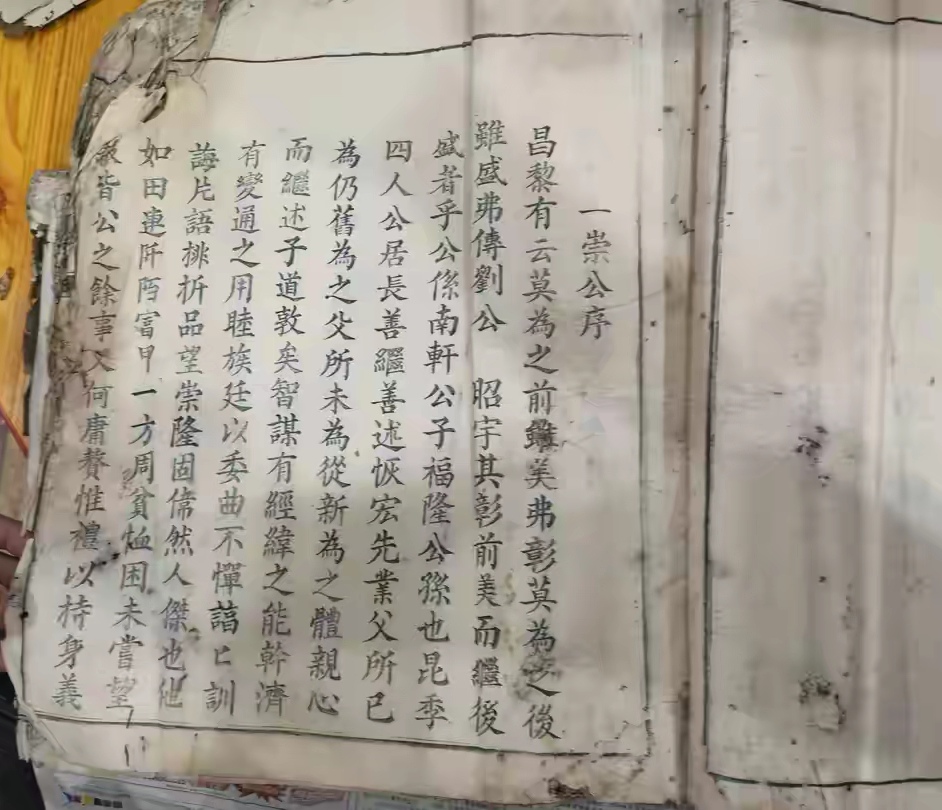 一崇公序
昌黎有云莫為之前雖美弗彰莫為之後
雖盛弗傳劉公 昭宇其彰前美而繼後
盛者乎公係南軒公子福隆公孫也昆季
四人公居長善繼善述恢宏先業父所已
為仍舊為之父所未為從新為之體親心
而繼述子道敦矣智謀有經緯之能幹濟
有變通之用睦族廷以委曲不憚諄匕訓
誨片語排折品望崇隆固偉然人傑也他
如田連阡陌富甲一方周貧恤困未嘗望
報皆公之餘事又何庸贅惟禮以持身義